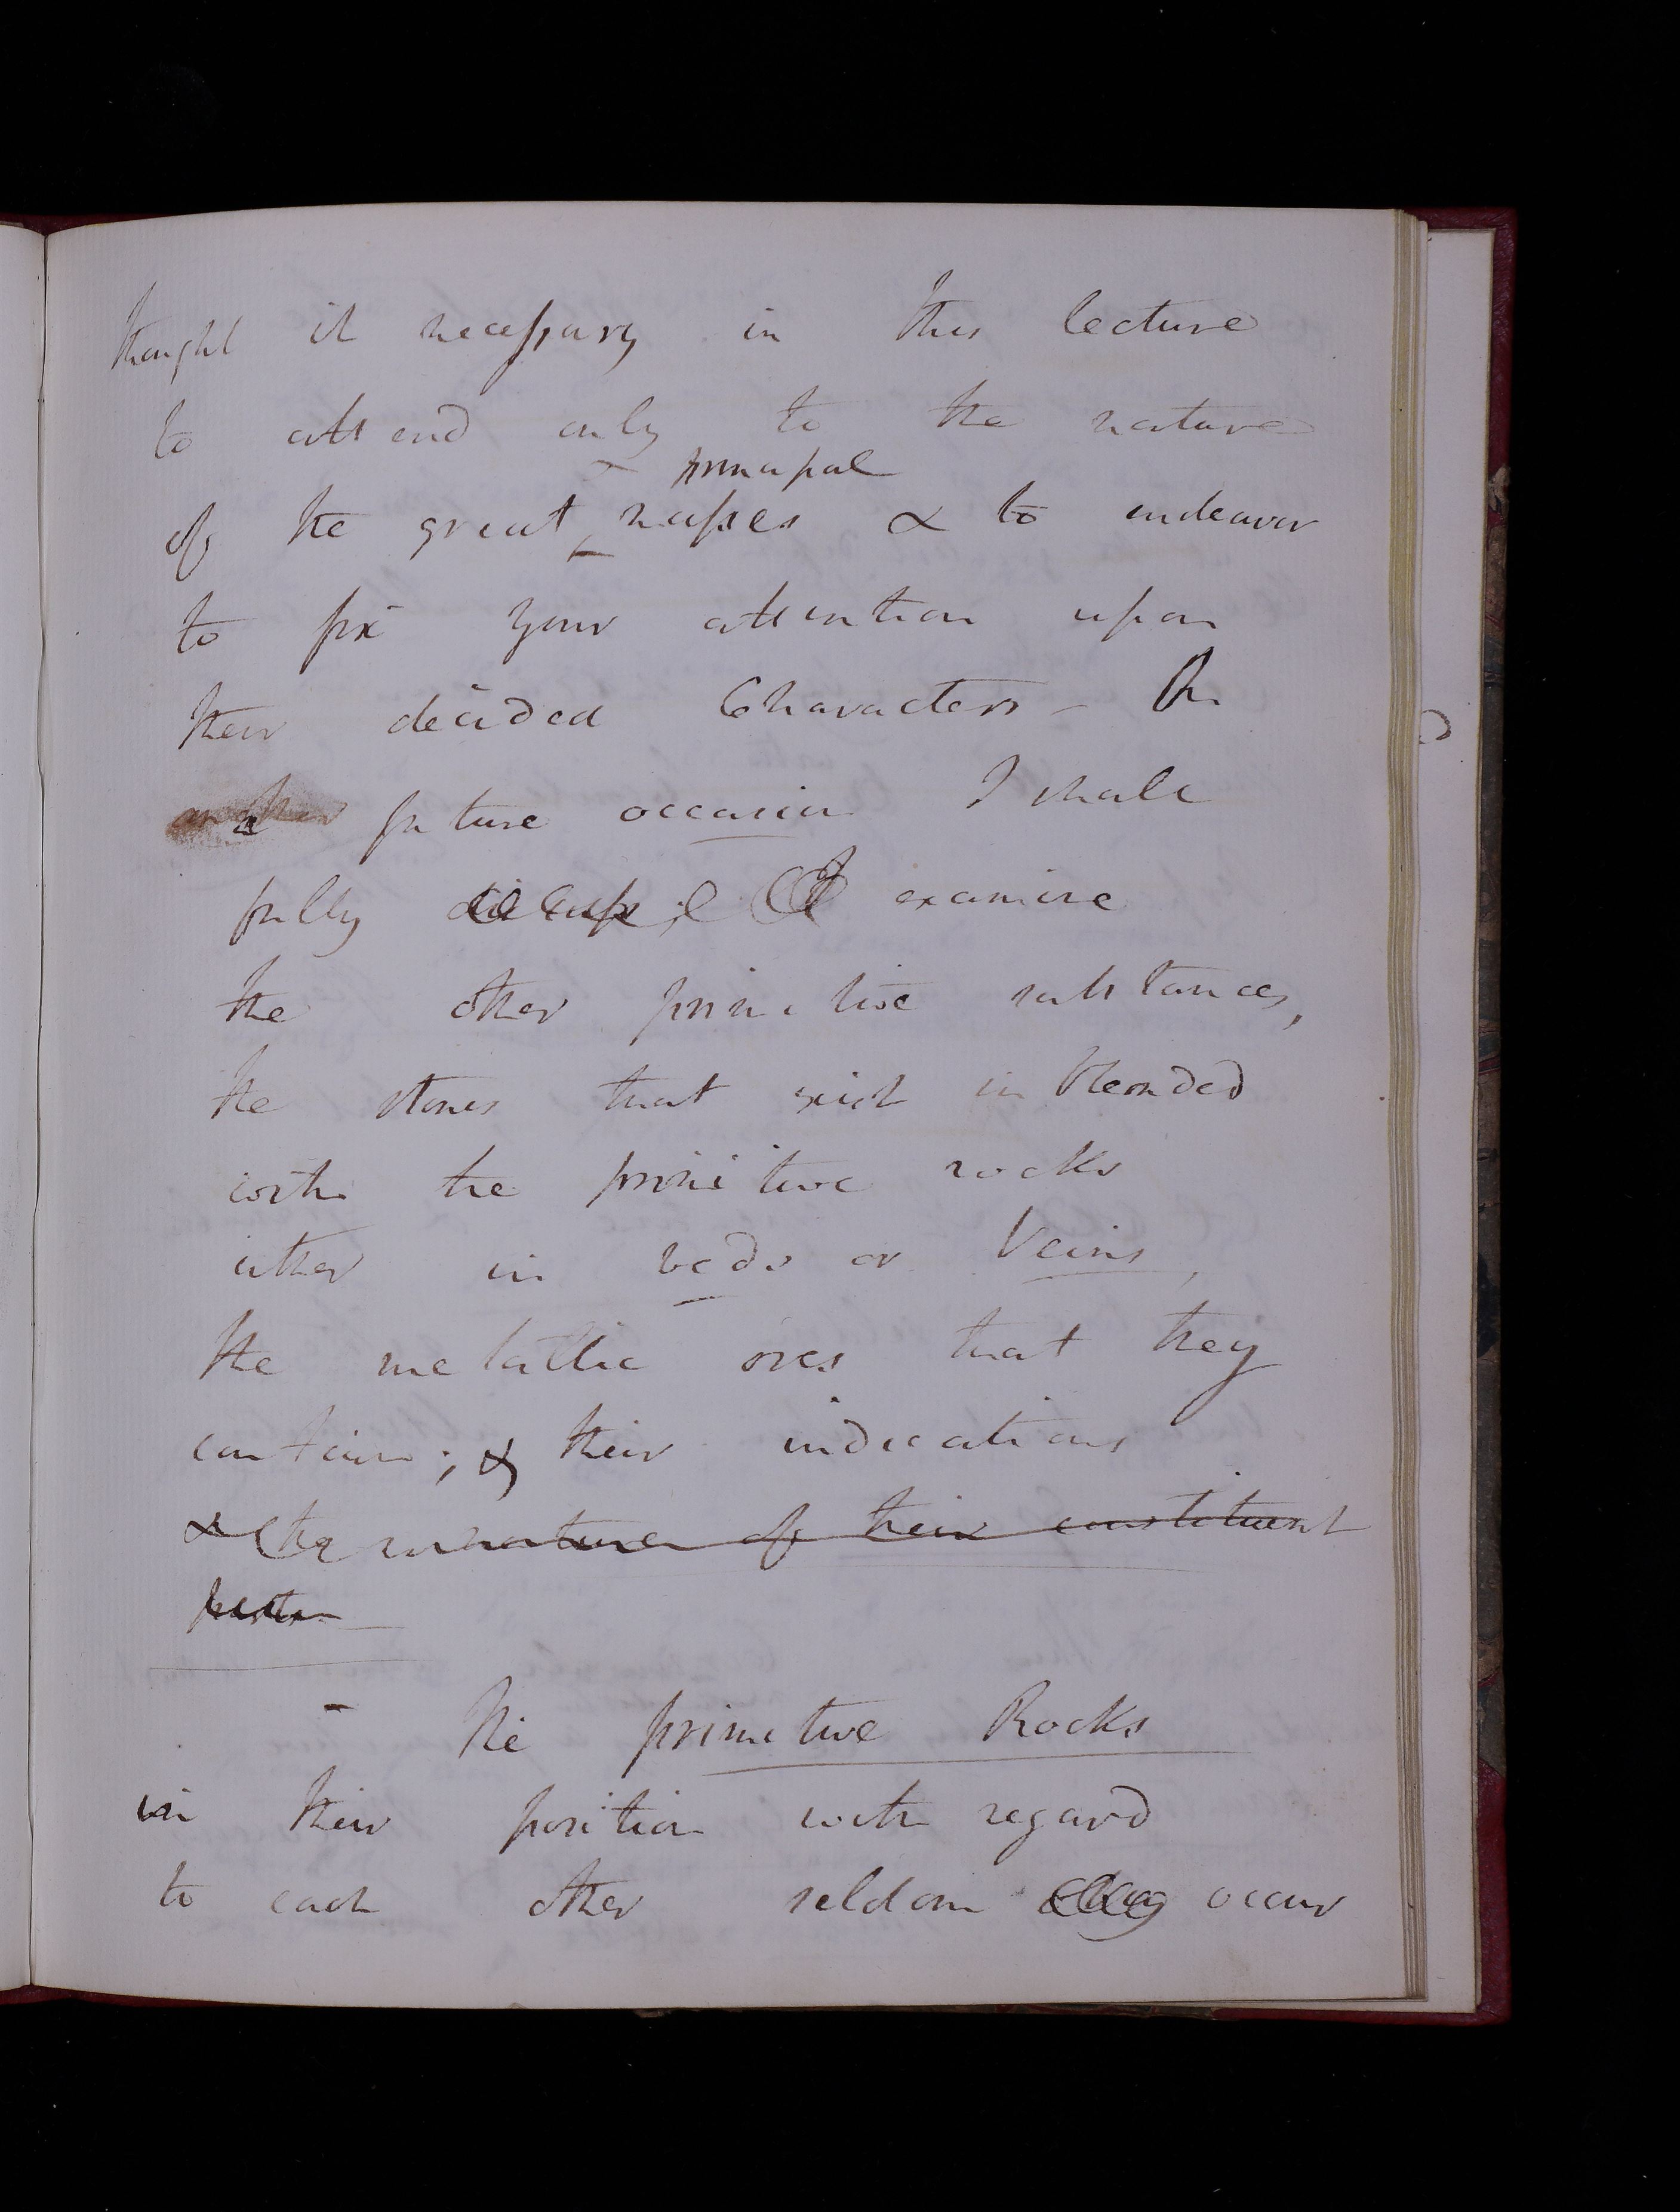 thought it necessary in this lecture
to attend only to the nature
principal
of the great masses & to endeavor
to fix your attention upon
their decided Characters – On
a future occasion I shall
fully discuss & examine
the other primitive substances,
the stones that exist in blended
with the primitive rocks
either in beds or Veins,
the metallic ores that they
contain; & their indications
& the nature of their constituent
parts
– The primitive Rocks
in their position with regard
to each other seldom occur